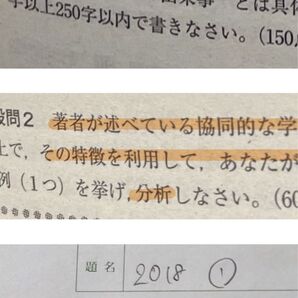 字以上250字以内で書きなさい。(150
設問2 著者が述べている協同的な学
上で，その特徴を利用して，あなたが
例（1つ）を挙げ，分析しなさい。(60
題名 2018 ①